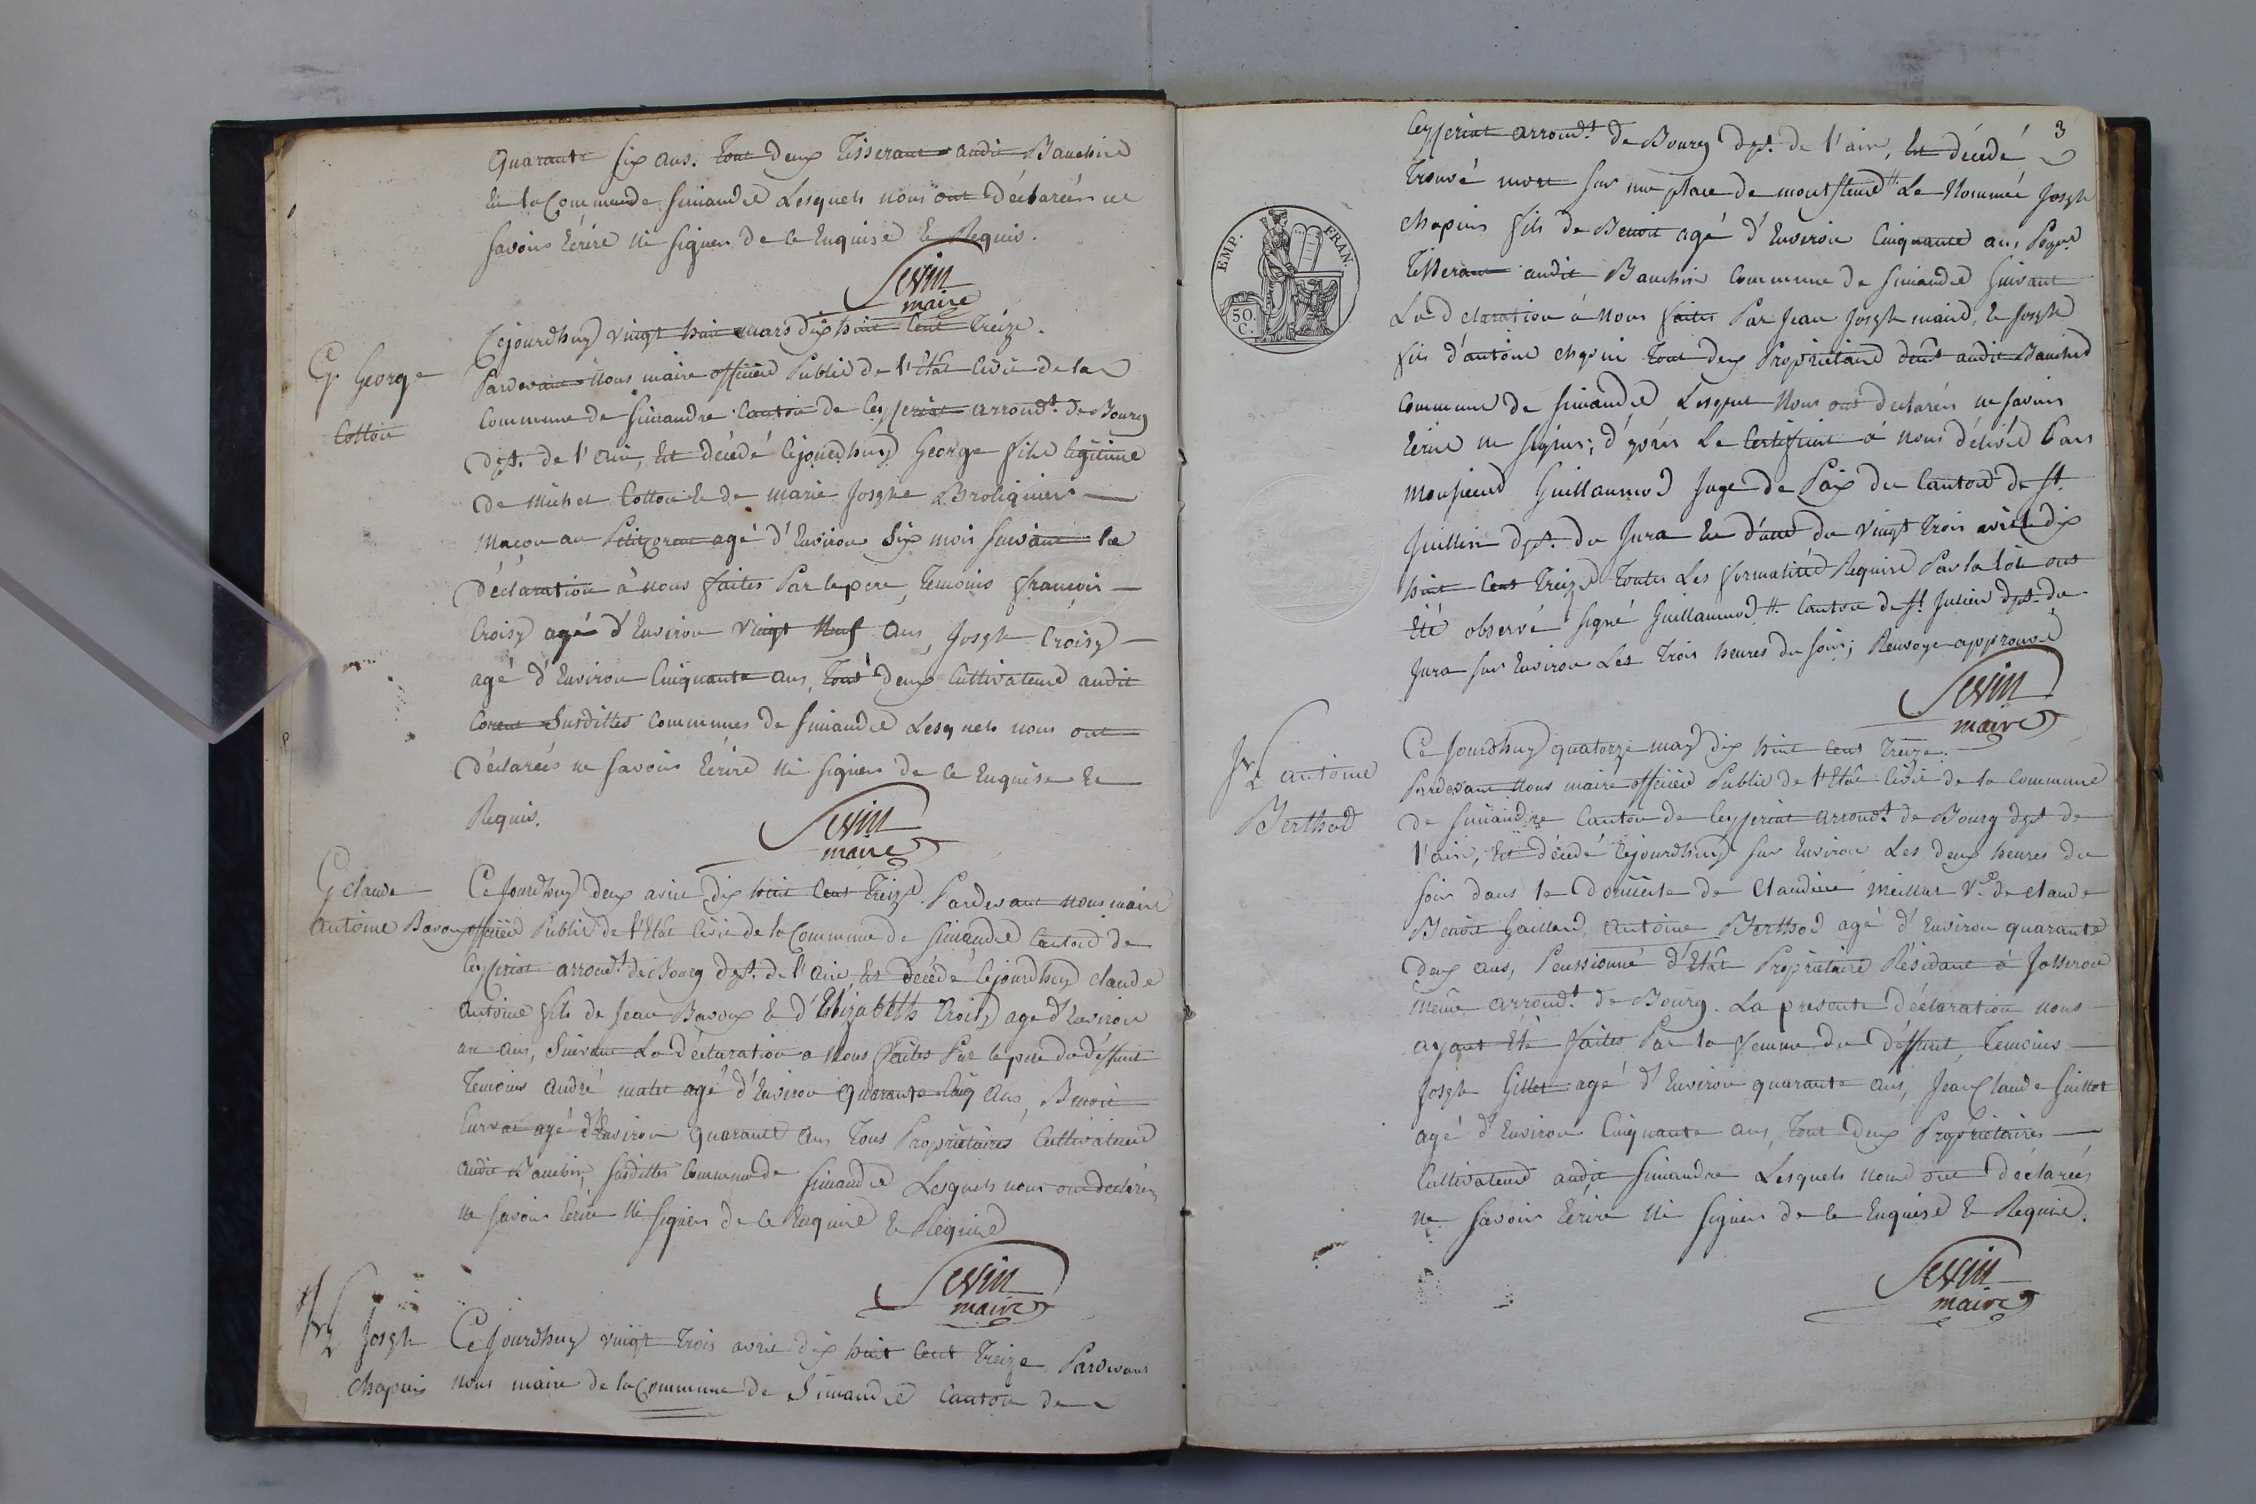 quarante six ans. tout deux tisserant audit Bauchin
en la Commune de simandre Lesquels nous ont déclarées ne
savoir Ecrire ni signer de ce Enquise & Requis.
Sevin
maire
G. George
Cottin
Cejourdhuy vingt huit mars dix huit Cent treize.
Pardevant Nous maire officier Public de l'Etat Civil de la
Commune de simandre Canton de Ceyseriat arrondt. de Bourg
dpt. de l'ain, Est décédé Cejourdhuy George fils légitime
de Michel Cottin & de marie Josephe
maçon au agé d'Environ Six mois suivant la
déclaration à nous faites Par le pere, temoins françois
Croisy agé d'Environ vingt Neuf ans, Joseph Croisy
agé d'Environ Cinquante ans, Tout deux Cultivateurs audit
Corent Susdittes communes de simandre Lesquels nous ont
déclarées ne savoir Ecrire ni signer de ce Enquise Et
Requis.
Sevin
maire
G claude
antoine Bavoux
Ce Jourdhuy deux avril dix huit Cent Treize Pardevant Nous maire
officier Public de l'Etat Civil de la Commune de simandre Canton de
Ceyseriat arrondt. de Bourg dpt. de l'ain, Est décédé Cejourdhuy claude
antoine fils de Jean Bavoux & d'Elizabeth Croisy agé d'Environ
un ans, suivant La déclaration a Nous faites Par le pere du deffunt
Temoins andré agé d'Environ quarante Cinq ans, Benoit
agé d'Environ quarante ans Tous Propriétaires Cultivateurs
audit Bauchin, susdittes Commune de simandre Lesquels nous ont declarées
ne savoir Ecrire Ni signer de ce Enquise & Requise
Sevin
maire
Joseph
chapuis
Ce Jourdhuy vingt Trois avril dix huit Cent Treize Pardevant
nous maire de la Commune de Simandre Canton de
3
EMP. FRAN.
50.
C.
Ceyseriat arrondt. de Bourg dpt. de l'ain, Est décédé
Trouvé mort sur une place de montfleur # Le Nommée Joseph
chapuis fils de Benoit agé d'Environ Cinquante ans
Tisserant audit Bauchin Commune de simandre suivant
La declaration à Nous faites Par Jean Joseph maire & Joseph
fils d'antoine chapuis Tout deux Propriétaire audit Bauchin
Commune de simandre Nous ont declarées ne savoir
Ecrire ne signer; d'après Le Certificat à nous délivré Par
Monsieur Guillaumod Juge de Paix du Canton de st.
Juillin dpt. du Jura en d'atte du vingt Trois avril dix
huit Cent Treize Toutes Les formalitées Requise Par la loi ont
Eté observé signé Guillaumod # Canton de st Julien dpt. du
Jura sur Environ Les Trois heures du soir; Renvoye approuvé
Sevin
maire
antoine
Berthod
Ce Jourdhuy quatorze may dix huit Cent Treize.
Pardevant Nous maire officier Public de l'Etat Civil de la Commune
de simandre Canton de Ceyseriat arrondt. de Bourg dpt de
l'ain, Est décédé Cejourdhuy sur Environ Les deux heures du
soir dans le domicile de Claudine Meillat Ve. de claude
Benoit Gaillard, antoine Berthod agé d'Environ quarante
deux ans, Penssionné d'Etat Propriétaire Résidant à Jasseron
même arrondt. de Bourg. La presente déclaration nous
ayant Eté faites Par la femme du deffunt, Temoins
Joseph Gillet agé d'Environ quarante ans, Jean Claude Guillot
agé d'Environ Cinquante ans, Tout deux Propriétaires
Cultivateurs audit simandre Lesquels nous ont déclarées
ne savoir Ecrire Ni signer de ce Enquise & Requise.
Sevin
maire